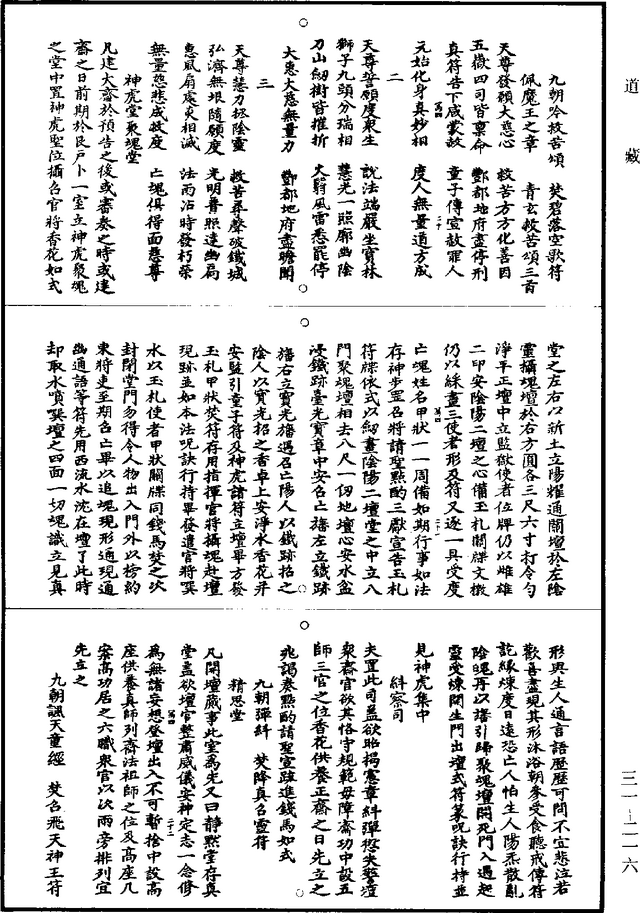 道藏
九朝吟救苦頌　焚碧落空歌符
佩魔王之章　青玄救苦頌三首
天尊發願大慈心　救苦方方化善因
五嶽四司皆稟命　酆都地府盡停刑
真符告下咸蒙赦　童子傳宣赦罪人
元始化身真妙相　度人無量道方成
二
天尊誓願度衆生　說法端嚴坐寶林
獅子九頭分瑞相　慧光一照廓幽陰
刀山劒樹皆摧折　火翳風雷悉罷停
大惠大慈無量力　酆都地府盡瞻聞
三
天尊慧力拯陰靈　救苦尋聲破鐵城
弘濟無垠隨願度　光明普照達幽局
惠風扇處炎相滅　法雨沾時發朽榮
無量慈悲成救度　亡魂俱得面慈尊
神虎堂聚魂堂
凡建大齋於預告之後或審奏之時或建
齋之日前期於艮戶卜一室立神虎聚魂
之堂中置神虎聖位攝召官將香花如式
堂之左右以新土立陽耀通關壇於左陰
靈攝魂壇於右方圓各三尺六寸打令勻
淨平正壇中立監獄使者位牌仍以雌雄
二印安陰陽二壇之心備玉札關牒文檄
仍以綵畫三使者形及符又逐一具受度
亡魂姓名甲狀一一周備如期行事如法
存神步罡召將請聖點酌三獻宣告玉札
符牒依式以劒畫陰陽二壇堂之中立八
門聚魂壇相去八尺一仞地壇心安水盆
浸鐵跡臺光寶章中安召亡旛左立鐵跡
旛右立寶光旛遇召亡陽人以鐵跡招之
陰人以寶光招之香卓上安淨水香花并
安監引童子符及神虎諸符立壇畢方發
玉札甲狀焚符存用指揮官將攝魂赴壇
現跡並如本法呪訣行持畢發遣官將冥
水以玉札使者甲狀關牒同錢馬焚之次
封閉堂門勿得令人物出入門外以榜約
束將吏至期召亡畢以追魂現形通現通
幽通語等符先用西流水沈在壇了此時
却取水噴巽壇之四面一切魂識立見真
形與生人通言語歷歷可問不宜悲泣若
歡喜盡現其形沐浴朝參受食聽戒傳符
訖緣煉度日遠恐亡人怕生人陽炁散亂
陰魄再以旛引歸聚魂壇開死門入遇起
靈受煉開生門出壇式符篆呪訣行持並
見神虎集中
糾察司
夫置此司蓋欲昭揭憲章糾彈愆失警壇
衆齋官欲其恪守規範毋障齋功中設五
師三官之位香花供養正齋之日先立之
飛謁奏點酌請聖宣疏進錢馬如式
九朝彈糾　焚降真召靈符
精思堂
凡開壇蕆事此室爲先又曰靜默堂存真
堂蓋欲壇官整肅威儀安神定志一念修
爲無諸妄想登壇出入不可暫捨中設高
座供養真師列齋法祖師之位及高座几
案高功居之六職衆官以次兩旁排列宜
先立之
九朝誦天童經　焚召飛天神王符
三一—二一六